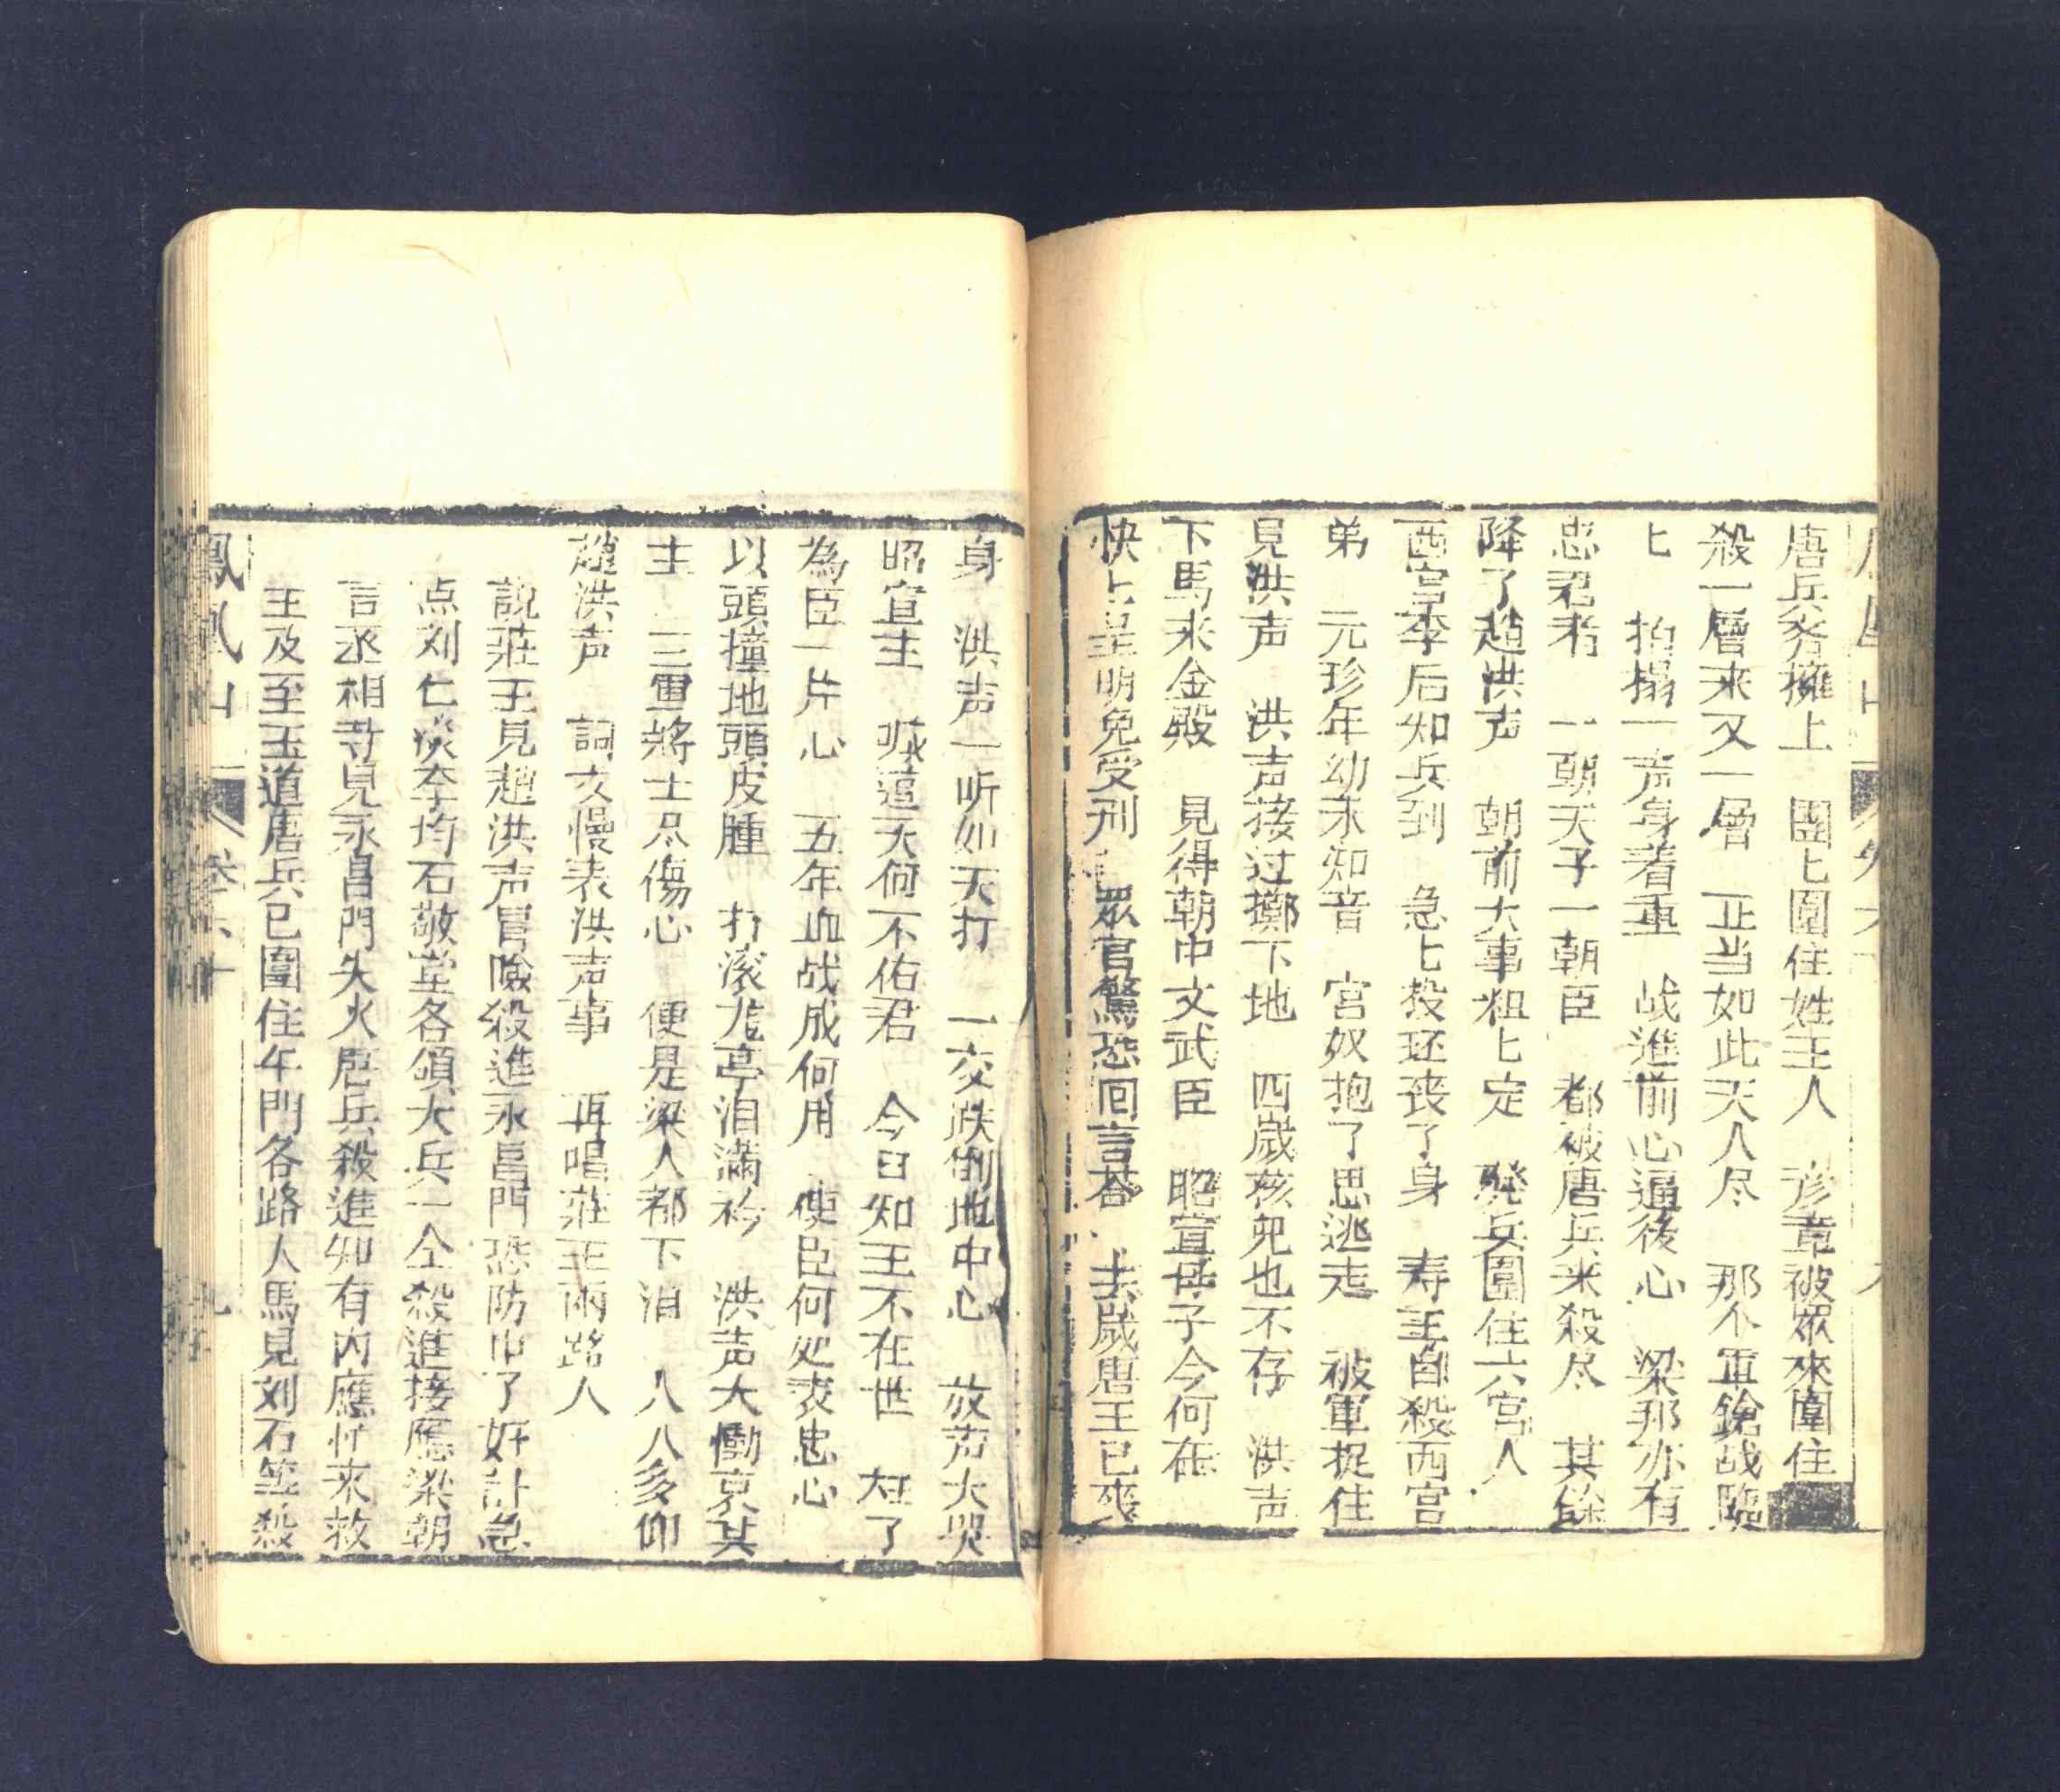 唐兵齐擁上　團匕圍住姓王人　彦章被眾來圍住
殺一層来又一層　正当如此天人尽　那个軍鎗战臨
匕　拍搨一声身着重　战進前心逼後心　梁邦亦有
忠君者　一朝天子一朝臣　都被唐兵来殺尽　其餘
降了趙洪声　朝前大事粗匕定　発兵圍住六宮人
西宮李后知兵到　急匕投环丧了身　寿王自殺西宮
弟　元珍年幼未知音　宮奴抱了思逃走　被軍捉住
見洪声　洪声接过擲下地　四歲孩兒也不存　洪声
下馬来金殿　見得朝中文武臣　昭宣母子今何在
快匕呈明免受刑　眾官驚恐回言荅　去歲唐王已喪
身　洪声一听如天打　一交跌倒地中心　放声大哭
昭宣主　喊道天何不佑君　今日知王不在世　枉了
為臣一片心　五年血战成何用　使臣何处表忠心
以頭撞地頭皮腫　打滚尨亭泪滿衿　洪声大慟哀其
主　三軍將士尽傷心　便是梁人都下泪　人人多仰
趙洪声　詞文慢表洪声事　再唱莊王兩路人
說莊王見趙洪声冒險殺進永昌門恐防中了奸計急
点刘仁淡李均石敬堂各領大兵一仝殺進接應梁朝
言丞相等見永昌門失火唐兵殺進知有内應忙来救
王及至玉道唐兵已圍住午門各路人馬見刘石等殺
鳳凰山　卷六十　九